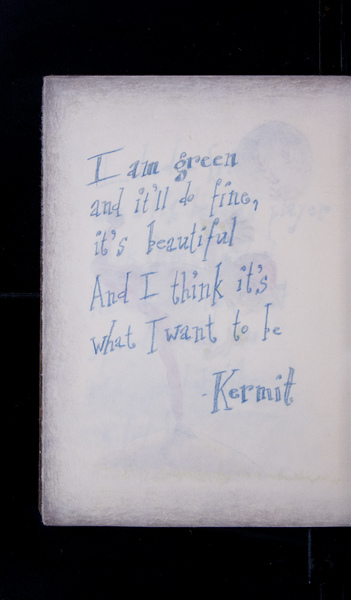 I am green
and it'll do fine,
it's beautiful
And I think it's
what I want to be
-Kermit